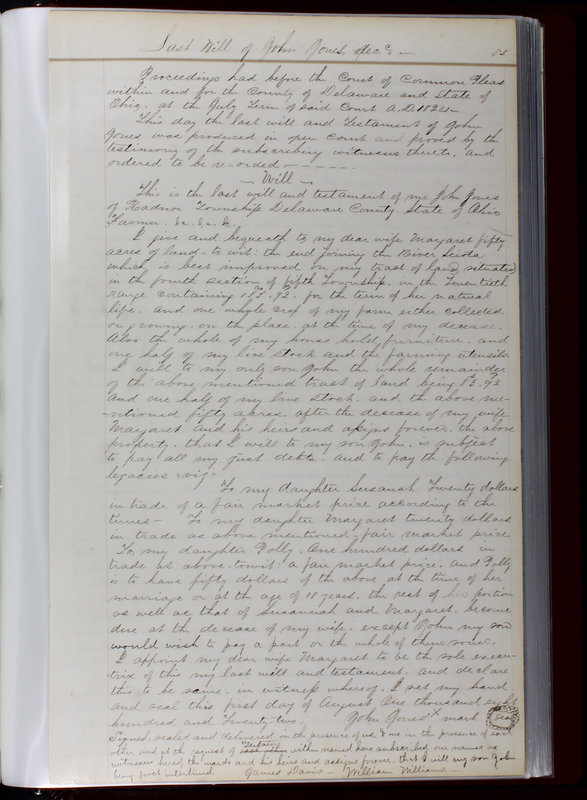 Last Will of John Jones Dec.
83
Proceedings had before the Court of Common Pleas
within and for the County of Delaware and State of
Ohio, at the July Term of said Court A.D. 1824
This day the last will and Testament of John
Jones was produced in open Court and proved by the
testimony of the subscribing witnesses thereto, and
ordered to be recorded
Will
This is the last will and testament of me John Jones
of Radnor Township Delaware County, State of Ohio
Farmer. &c. &c. &c.
I give and bequeath to my dear wife Margaret fifty
acres of land - to wit: the end joining the River Sciota
which is best improved on my tract of land, situated
in the fourth section of fifth Township, in the Twentieth
range containing 133.92. for the term of her natural
life. and one whole crop of my farm either collected
or growing on the place, at the time of my decease.
Also the whole of my house hold furniture, and
one half of my live stock and the farming utensils.
I will to my only son John the whole remainder
of the above mentioned tract of land being 83.92
and one half of my live stock, and the above me-
-ntioned fifty acres, after the decease of my wife
Margaret. and his heirs and assigns forever. the above
property, that I will to my son John, is subject
to pay all my just debts. and to pay the following
legacies. viz.
To my daughter Susanah Twenty dollars
in trade of a fair market price according to the
times - To my daughter Margaret twenty dollars
in trade as above mentioned, fair market price.
To, my daughter Polly, One hundred dollars in
trade as above, towit: a fair market price. and Polly
is to have fifty dollars of the above at the time of her
marriage or at the age of 18 years. the rest of her portion
as well as that of Susannah and Margaret, become
due at the decease of my wife, except John my son
would wish to pay a part or the whole of them sooner,
I appoint my dear wife Margaret to be the sole execu-
trix of this my last will and testament, and declare
this to be same, in witness whereof. I set my hand
and seal this first day of August, One thousand eight
hundred and Twenty two. John Jones X mark Seal
Signed, sealed and delivered in the presence of us, & we in the presence of each
other and at the request of Testator within named have subscribed our names as
witnesses hereof the words and his heirs and assigns forever, that I will my son John
being first interlined James Davis - William Williams -